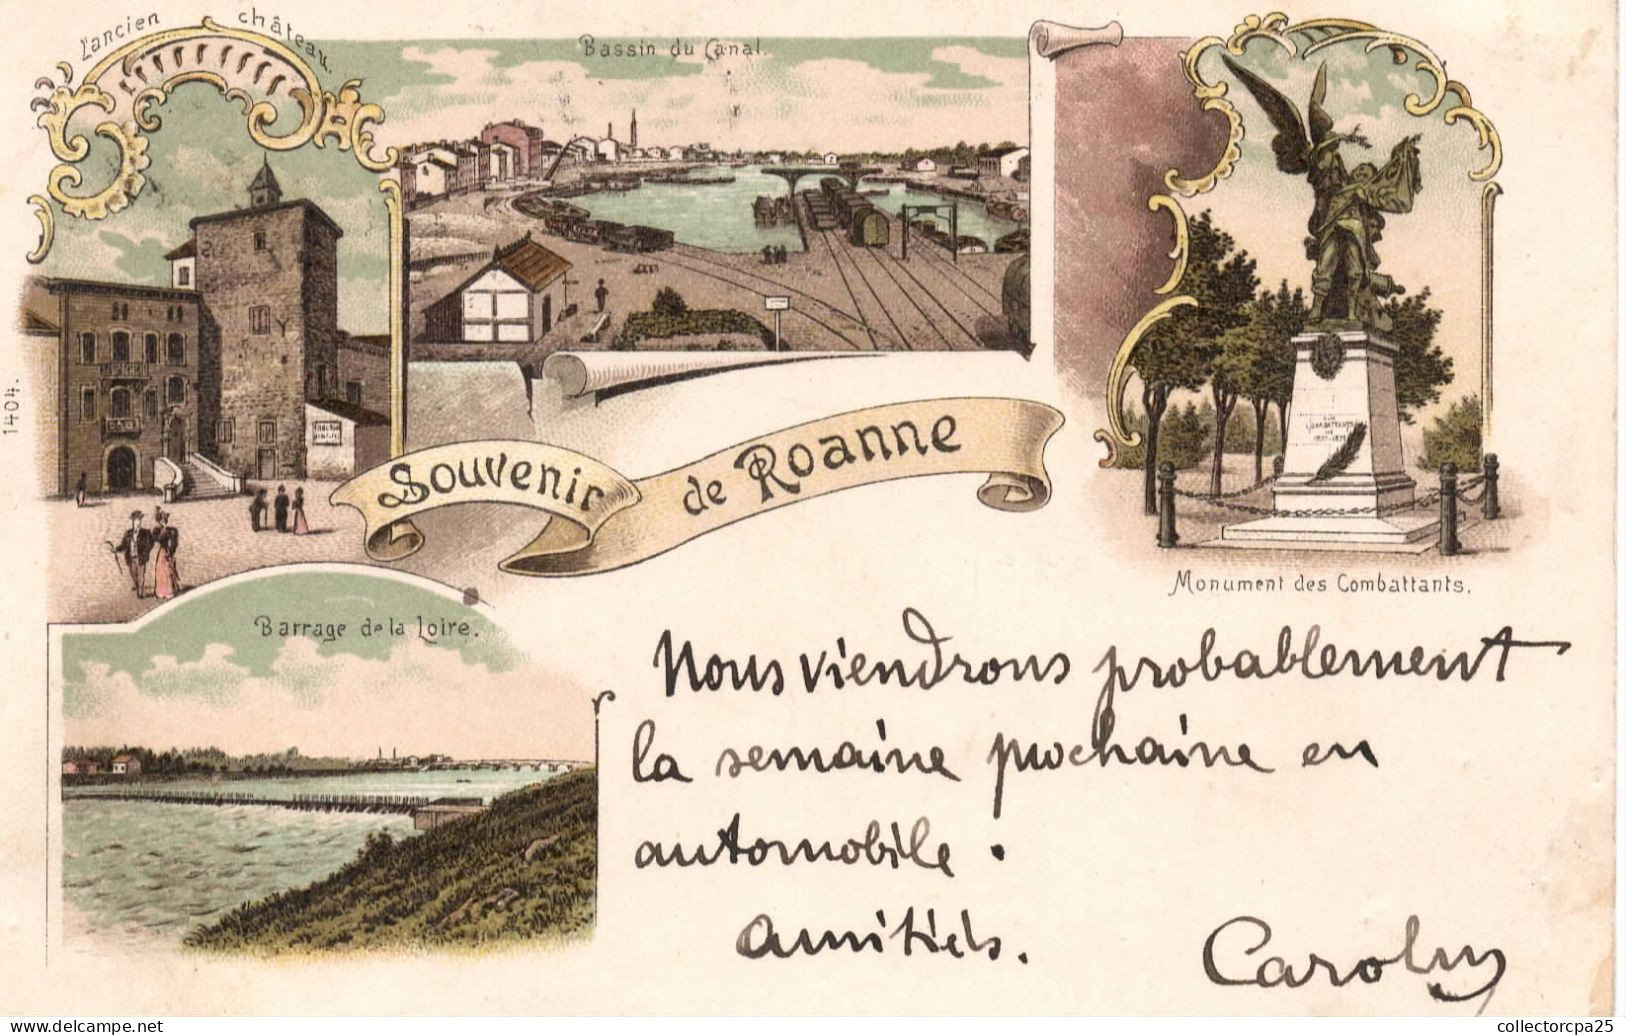 L'ancien château.
Bassin du Canal.
1404.
Souvenir de Roanne
Monument des Combattants.
Barrage de la Loire.
Nous viendrons probablement
la semaine prochaine en
automobile.
amitiés.
Caroly
collectorcpa25